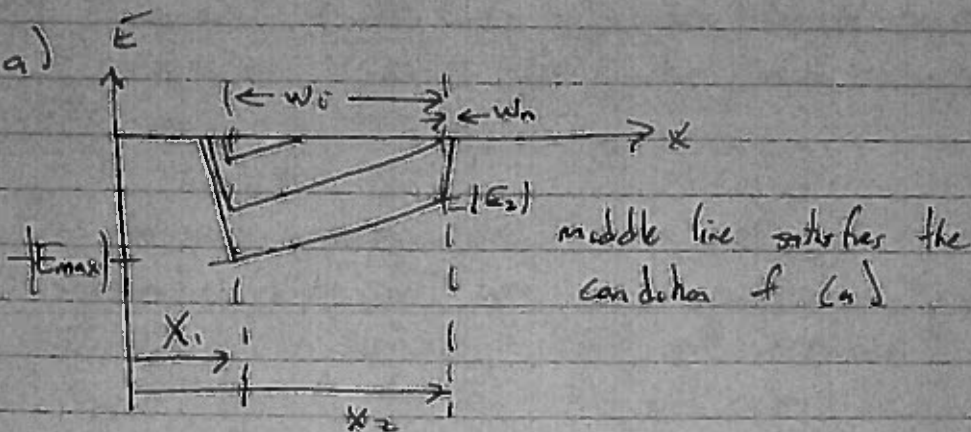 a)
E
← Wi →
← Wn
x
|E₂|
|Emax|
middle line satisfies the
condition of (a)
X₁
X₂